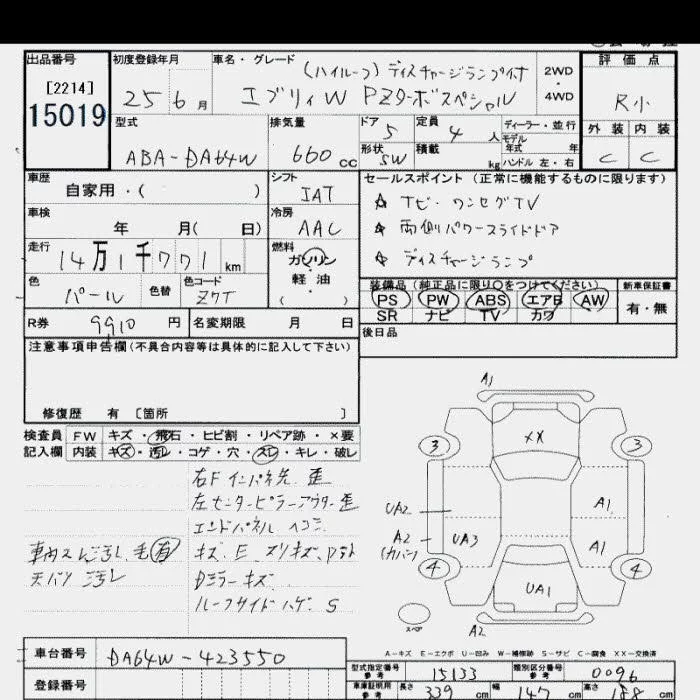 出品番号
[2214]
15019
初度登録年月
25 6 月
車名・グレード
(ハイルーフ) ディスチャージランプ付
エブリィW PZターボスペシャル
2WD
・
4WD
評価点
R小
外装 内装
C C
型式
ABA-DA64W
排気量
660 cc
ドア
5
形状
SW
定員
4 人
積載
kg
ディーラー・並行
モデル
年式 年
ハンドル 左・右
車歴
自家用・( )
シフト
IAT
車検
年 月( 日)
冷房
AAC
走行
14万1千771 km
燃料
ガソリン
軽油
( )
色
パール
色替
色コード
Z7T
R券
9910 円
名変期限 月 日
セールスポイント (正常に機能するものに限ります)
☆ ナビ・ワンセグTV
☆ 両側パワースライドドア
☆ ディスチャージランプ
装備品 (純正品に限り○をつけてください)
PS PW ABS エアB AW
SR ナビ TV カワ
新車保証書
有・無
後日品
注意事項申告欄(不具合内容等は具体的に記入して下さい)
修復歴 有 [箇所 ]
検査員
記入欄
FW キズ・飛石・ヒビ割・リペア跡・×要
内装 キズ・汚レ・コゲ・穴・スレ・キレ・破レ
右Fインパネ先 歪
左センターピラーアウター歪
エンドパネル ヘコミ
キズ、E
Dミラーキズ
ルーフサイドハゲ S
毛有
天バリ 汚レ
A1
XX
3
3
UA2
A2
(カバー)
UA3
A1
A1
4
4
UA1
スペア
A2
A-キズ E-エクボ U-凹み W-補修跡 S-サビ C-腐食 XX-交換済
車台番号
DA64W-423550
登録番号
型式指定番号
参考
15133
類別区分番号
参考
0096
車庫証明用
参考
長さ 339 cm
幅 147 cm
高さ 188 cm